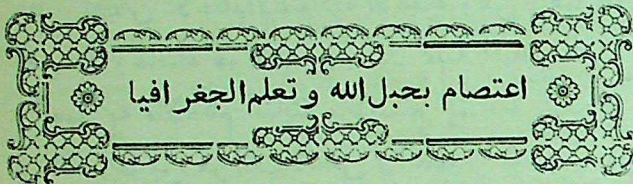 اعتصام بحبل الله و تعلم الجغرافيا